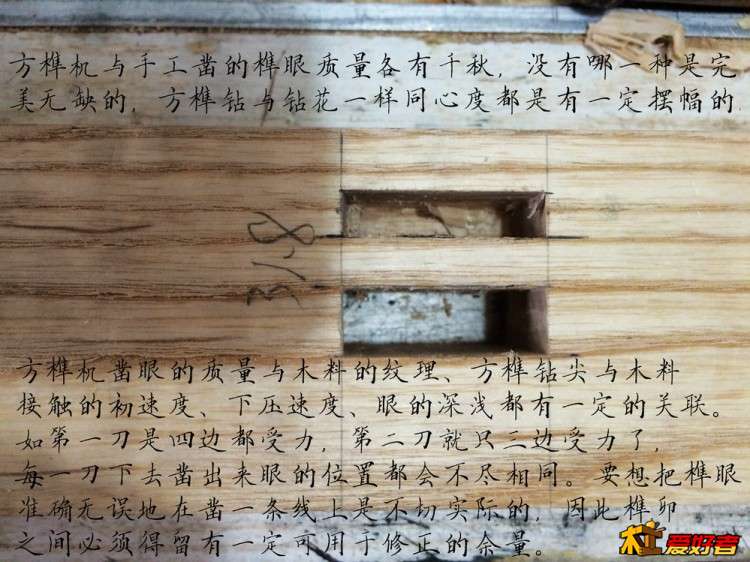 方榫机与手工凿的榫眼质量各有千秋，没有哪一种是完
美无缺的，方榫钻与钻花一样同心度都是有一定摆幅的
31.8
方榫机凿眼的质量与木料的纹理、方榫钻尖与木料
接触的初速度、下压速度、眼的深浅都有一定的关联。
如第一刀是四边都受力，第二刀就只三边受力了，
每一刀下去凿出来眼的位置都会不尽相同。要想把榫眼
准确无误地在凿一条线上是不切实际的，因此榫卯
之间必须得留有一定可用于修正的余量。
木工爱好者